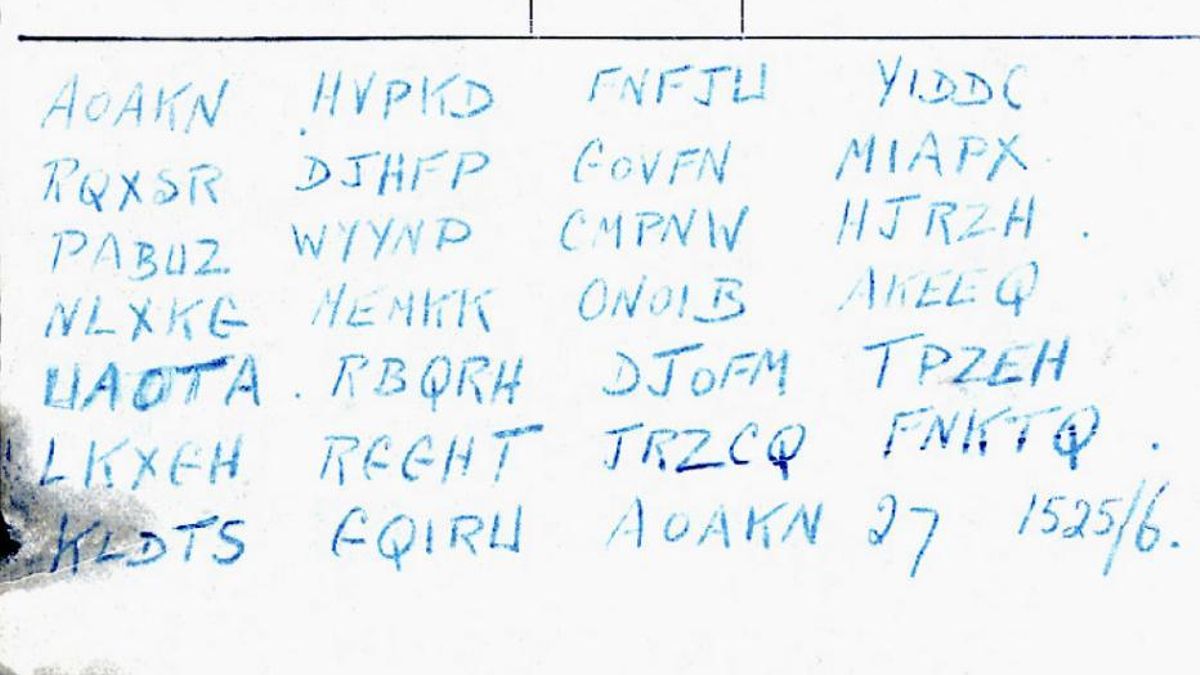 AOAKN HVPKD FNFJU YIDDC
RQXSR DJHFP GOVFN MIAPX
PABUZ WYYNP CMPNW HJRZH .
NLXKG MEMKK ONOIB AKEEQ
UAOTA . RBQRH DJOFM TPZEH
LKXGH RGGHT JRZCQ FNKTQ .
KLDTS GQIRU AOAKN 27 1525/6.